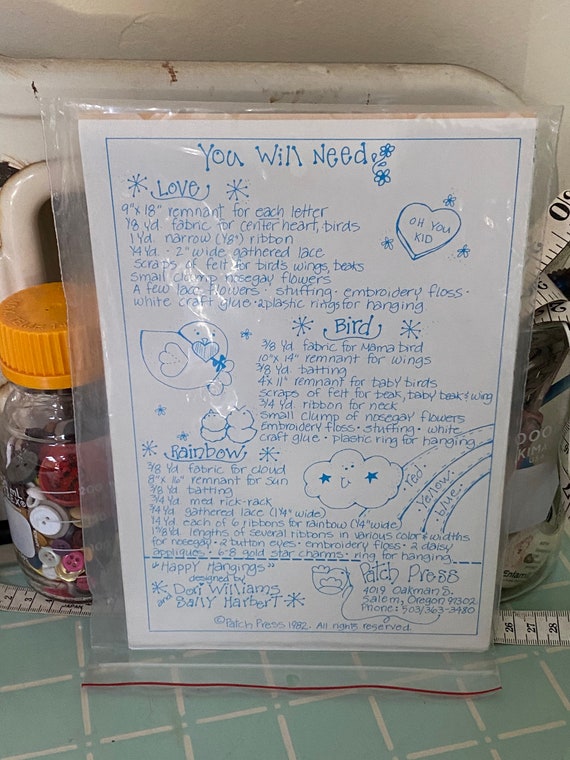 You Will Need
Love
9"x 18" remnant for each letter
1/8 yd. fabric for center heart, birds
1 Yd. narrow (1/8") ribbon
1/4 Yd. · 2" wide gathered lace
scraps of felt for bird's wings, beaks
small clump nosegay flowers
A few lace flowers · stuffing · embroidery floss ·
white craft glue · 2 plastic rings for hanging
OH YOU
KID
Bird
3/8 Yd. fabric for Mama bird
10" x 14" remnant for wings
3/8 Yd. batting
4 x 11" remnant for baby birds
scraps of felt for beak, baby beak & wing
3/4 Yd. ribbon for neck
small clump of nosegay flowers
embroidery floss · stuffing · white
craft glue · plastic ring for hanging
Rainbow
3/8 Yd. fabric for cloud
8" x 16" remnant for sun
3/8 Yd. batting
3/4 Yd. med rick-rack
3/4 Yd. gathered lace (1 1/4" wide)
1/4 Yd. each of 6 ribbons for rainbow (1/4" wide)
lengths of several ribbons in various colors & widths
for nosegay · 2 button eyes · embroidery floss · 2 daisy
appliques · 6-8 gold star charms · ring for hanging
red
yellow
blue
"Happy Hangings"
designed by
Dori Williams
and Sally Harbert
Patch Press
4019 Oakman S.
Salem, Oregon 97302
Phone: 503/363-3480
©Patch Press 1982. All rights reserved.
26 27 28